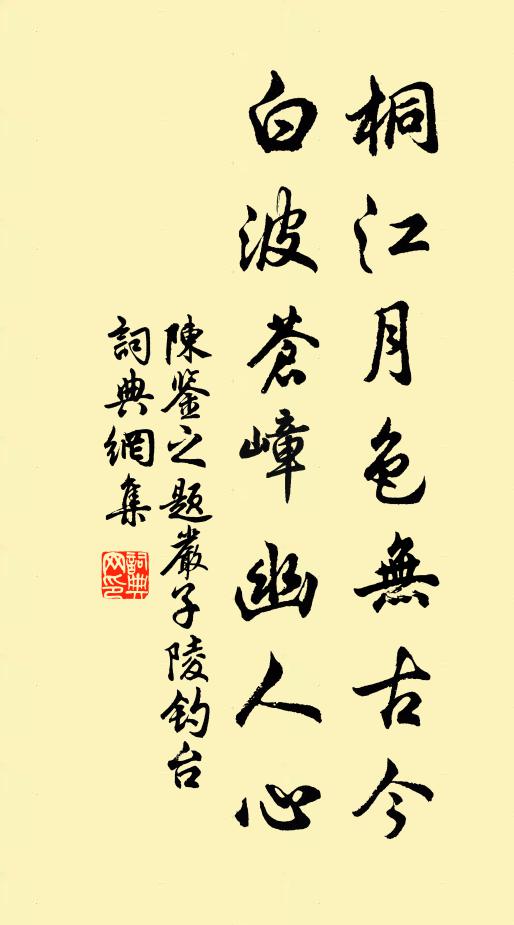 桐江月色無古今
白波蒼嶂幽人心
陳鑒之題嚴子陵釣台
詞典網集
詞典网印